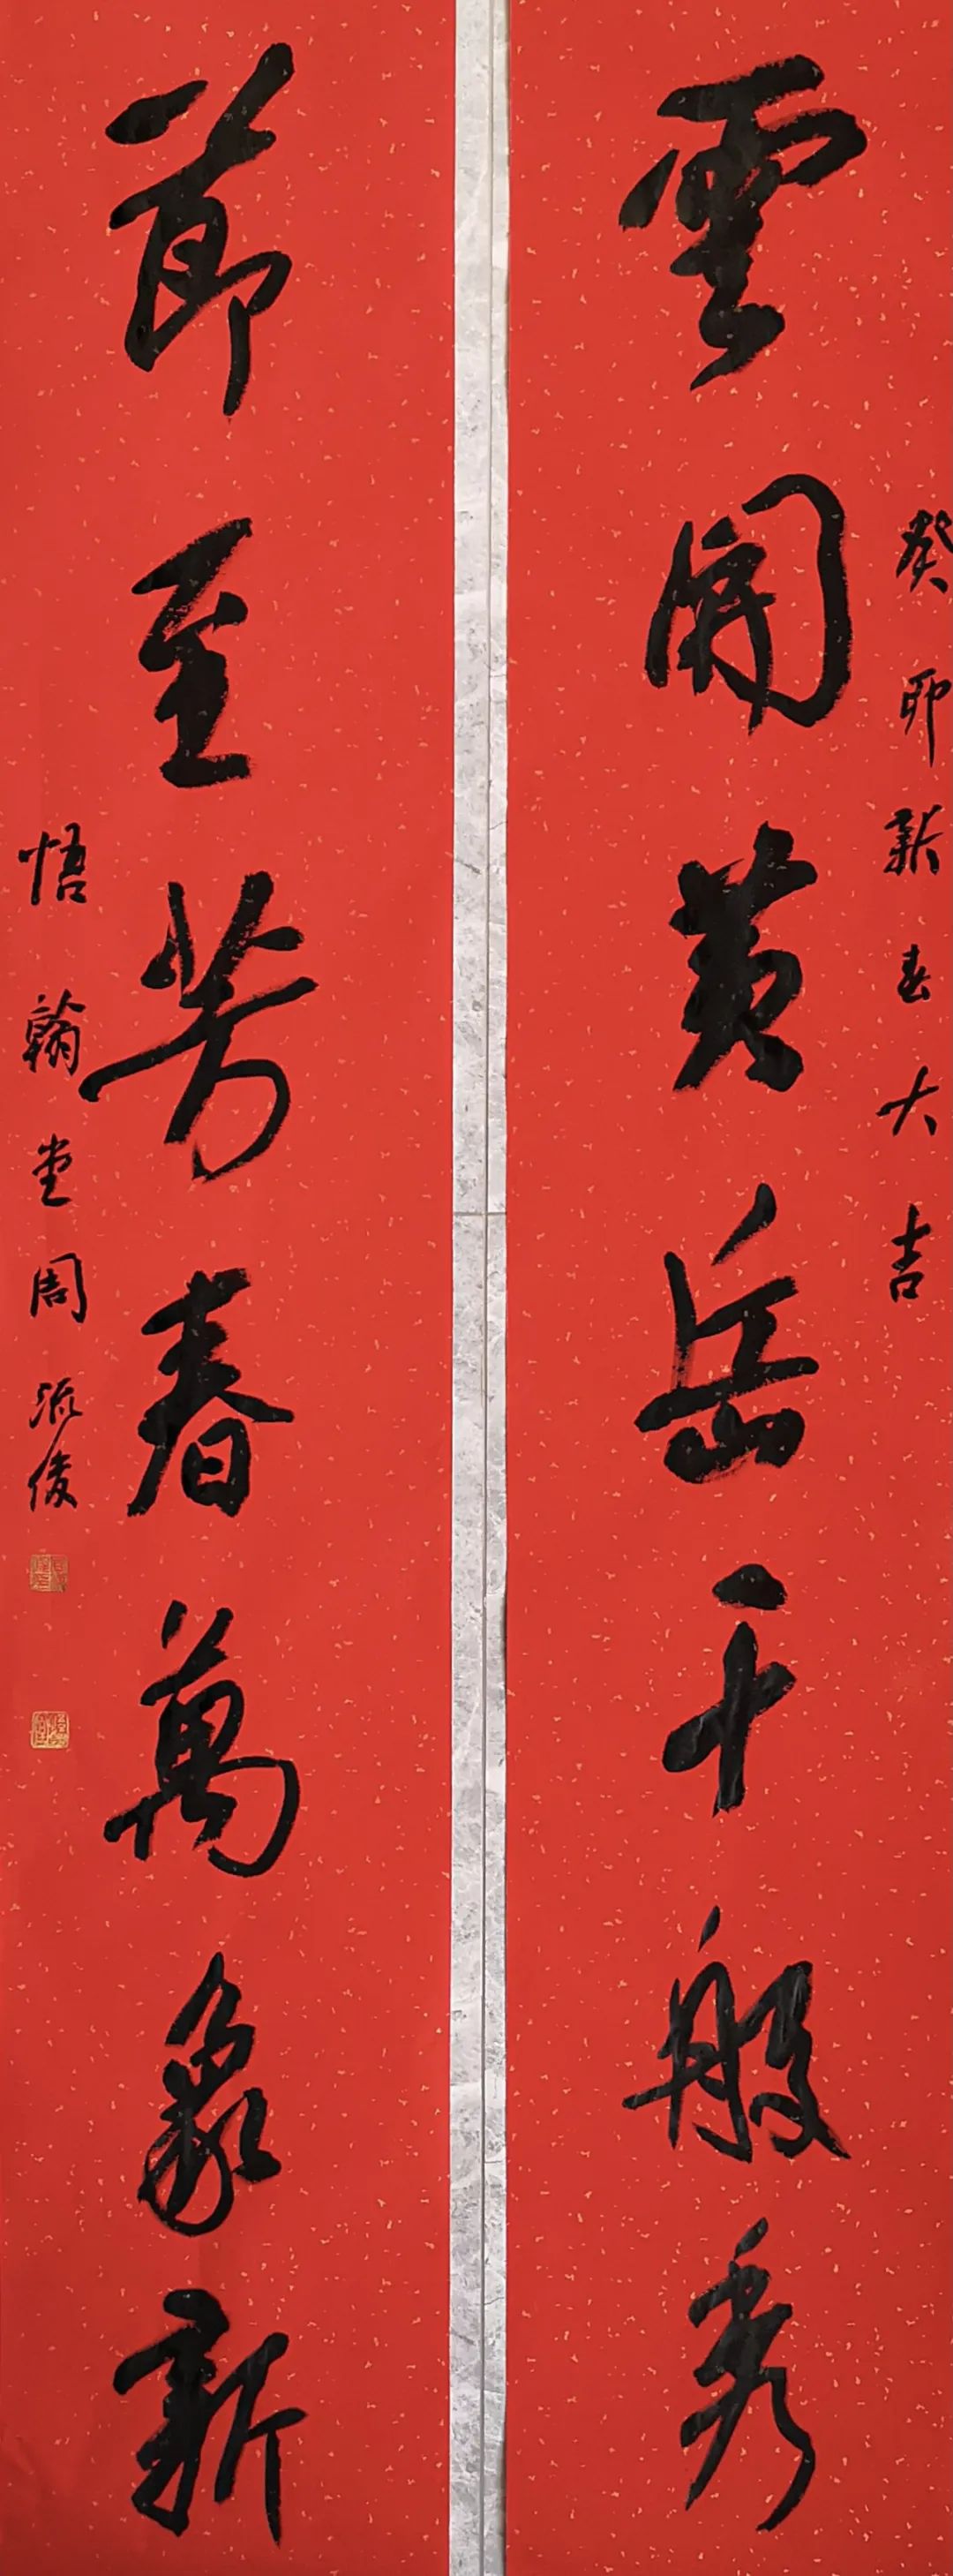 癸卯新春大吉
雲開黄岳千般秀
節至芳春萬象新
悟翰堂周流俊